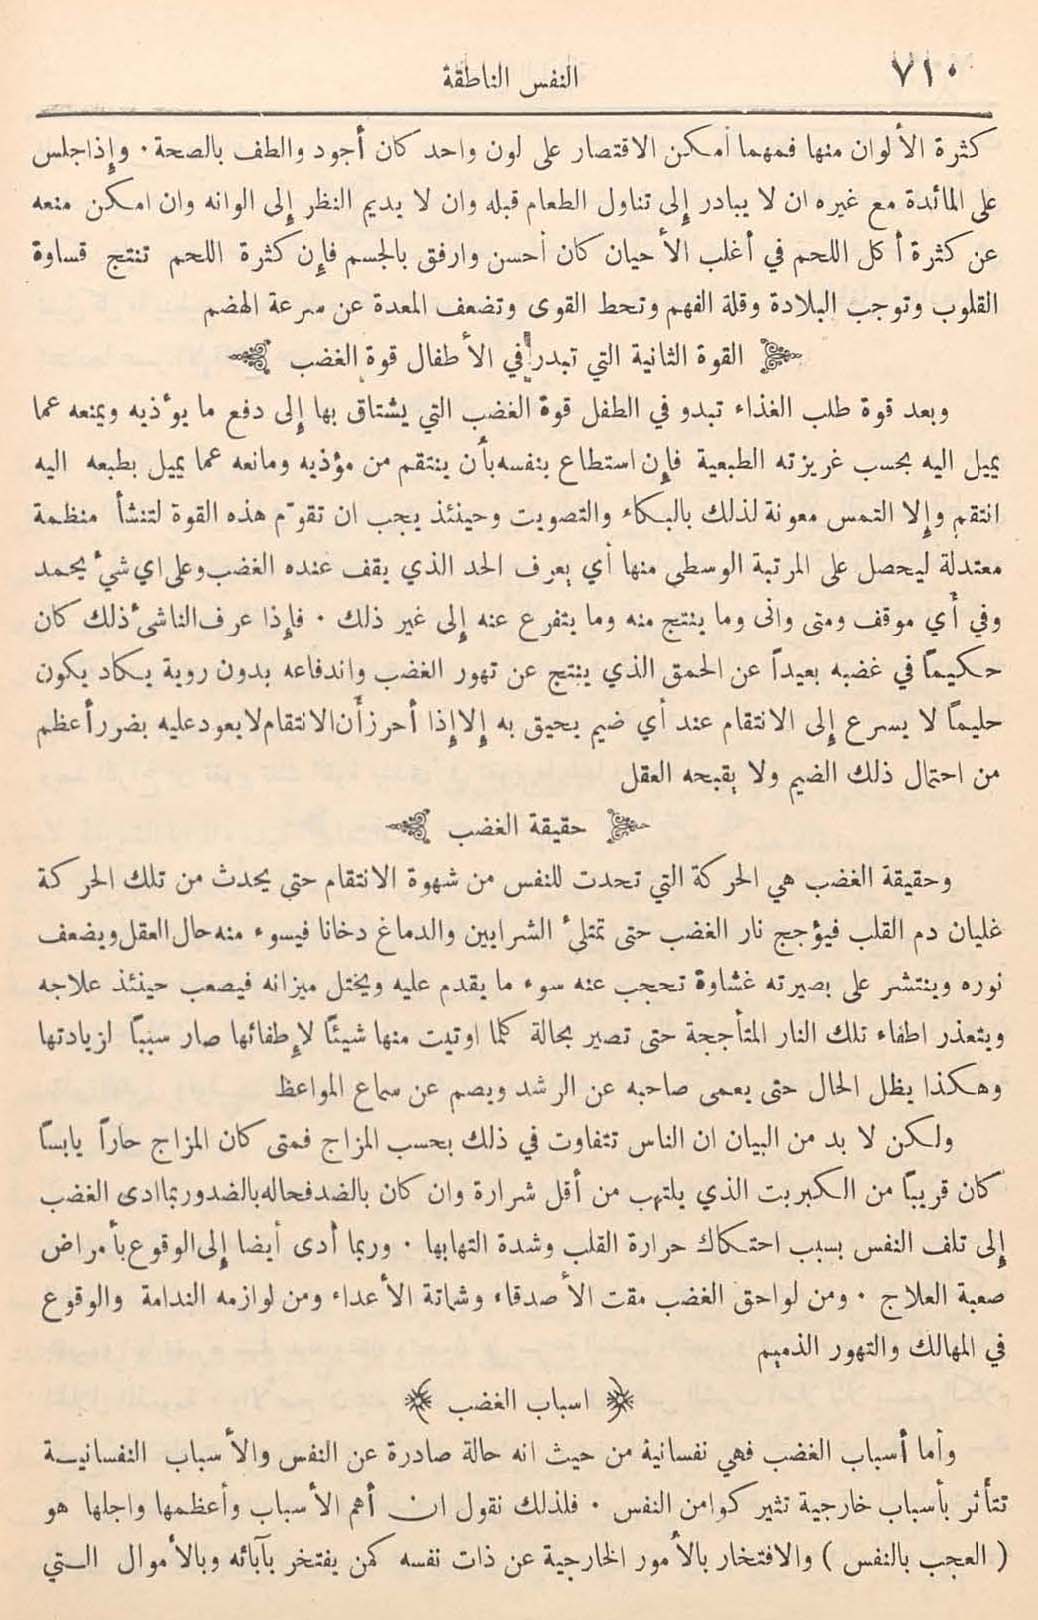 ٧١٠
النفس الناطقة
كثرة الألوان منها فمهما أمكن الاقتصار على لون واحد كان أجود والطف بالصحة . وإذا جلس
على المائدة مع غيره ان لا يبادر إلى تناول الطعام قبله وان لا يديم النظر إلى الوانه وان امكن منعه
عن كثرة أكل اللحم في أغلب الأحيان كان أحسن وارفق بالجسم فإن كثرة اللحم تنتج قساوة
القلوب وتوجب البلادة وقلة الفهم وتحط القوى وتضعف المعدة عن سرعة الهضم
القوة الثانية التي تبدر في الأطفال قوة الغضب
وبعد قوة طلب الغذاء تبدو في الطفل قوة الغضب التي يشتاق بها إلى دفع ما يؤذيه ويمنعه عما
يميل اليه بحسب غريزته الطبعية فإن استطاع بنفسه بأن ينتقم من مؤذيه ومانعه عما يميل بطبعه اليه
انتقم وإلا التمس معونة لذلك بالبكاء والتصويت وحينئذ يجب ان تقوّم هذه القوة لتنشأ منظمة
معتدلة ليحصل على المرتبة الوسطى منها أي يعرف الحد الذي يقف عنده الغضب وعلى اي شيء يحمد
وفي أي موقف ومتى وانى وما ينتج منه وما يتفرع عنه إلى غير ذلك . فإذا عرف الناشىء ذلك كان
حكيماً في غضبه بعيداً عن الحمق الذي ينتج عن تهور الغضب واندفاعه بدون روية يكاد يكون
حليماً لا يسرع إلى الانتقام عند أي ضيم يحيق به إلا إذا أحرز أن الانتقام لا يعود عليه بضرر أعظم
من احتمال ذلك الضيم ولا يقبحه العقل
حقيقة الغضب
وحقيقة الغضب هي الحركة التي تحدث للنفس من شهوة الانتقام حتى يحدث من تلك الحركة
غليان دم القلب فيؤجج نار الغضب حتى تمتلىء الشرايين والدماغ دخانا فيسوء منه حال العقل ويضعف
نوره وينتشر على بصيرته غشاوة تحجب عنه سوء ما يقدم عليه ويختل ميزانه فيصعب حينئذ علاجه
ويتعذر اطفاء تلك النار المتأججة حتى تصير بحالة كلما اوتيت منها شيئاً لإطفائها صار سبباً لزيادتها
وهكذا يظل الحال حتى يعمى صاحبه عن الرشد ويصم عن سماع المواعظ
ولكن لا بد من البيان ان الناس تتفاوت في ذلك بحسب المزاج فمتى كان المزاج حاراً يابساً
كان قريباً من الكبريت الذي يلتهب من أقل شرارة وان كان بالضد فحاله بالضد وربما ادى الغضب
إلى تلف النفس بسبب احتكاك حرارة القلب وشدة التهابها . وربما أدى أيضا إلى الوقوع بأمراض
صعبة العلاج . ومن لواحق الغضب مقت الأصدقاء وشماتة الأعداء ومن لوازمه الندامة والوقوع
في المهالك والتهور الذميم
اسباب الغضب
وأما أسباب الغضب فهي نفسانية من حيث انه حالة صادرة عن النفس والأسباب النفسانية
تتأثر بأسباب خارجية تثير كوامن النفس . فلذلك نقول ان أهم الأسباب وأعظمها واجلها هو
( العجب بالنفس ) والافتخار بالأمور الخارجية عن ذات نفسه كمن يفتخر بآبائه وبالأموال التي